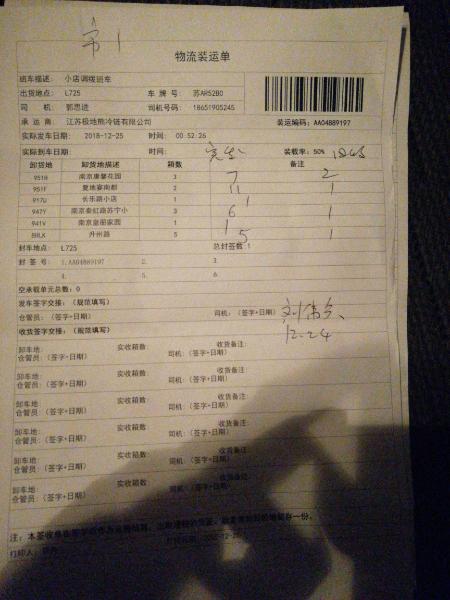 第1
物流装运单
班车描述: 小店调拨班车
出货地点: L725 车 牌 号: 苏AR52B0
司 机: 郭思进 司机号码: 18651905245
承 运 商: 江苏极地熊冷链有限公司 装运编码: AA04889197
实际发车日期: 2018-12-25 时间: 00:52:26
实际到车日期: 时间: 装载率: 50%
卸货地 卸货地描述 箱数 备注
951H 南京康馨花园 3 7 2
951F 夏地豪南都 2 11 1
917U 长乐路小店 1 1
947Y 南京秦虹路苏宁小 3 6 1
941V 南京皇册家园 1 1
88LK 升州路 5 5 1
封车地点: L725 总封签数:1
封 签 号: 1.AA04889197 2. 3.
4. 5. 6.
空承载单元总数: 0
发车签字交接: (规范填写)
仓管员: (签字+日期) 司机: (签字+日期)
12-24
收货签字交接: (规范填写)
卸车地: 实收箱数: 收货备注:
仓管员: (签字+日期) 司机: (签字+日期)
卸车地: 实收箱数: 收货备注:
仓管员: (签字+日期) 司机: (签字+日期)
卸车地: 实收箱数: 收货备注:
仓管员: (签字+日期) 司机: (签字+日期)
卸车地: 实收箱数: 收货备注:
仓管员: (签字+日期) 司机: (签字+日期)
卸车地: 实收箱数: 收货备注:
仓管员: (签字+日期) 司机: (签字+日期)
卸车地: 实收箱数: 收货备注:
仓管员: (签字+日期) 司机: (签字+日期)
打印人: